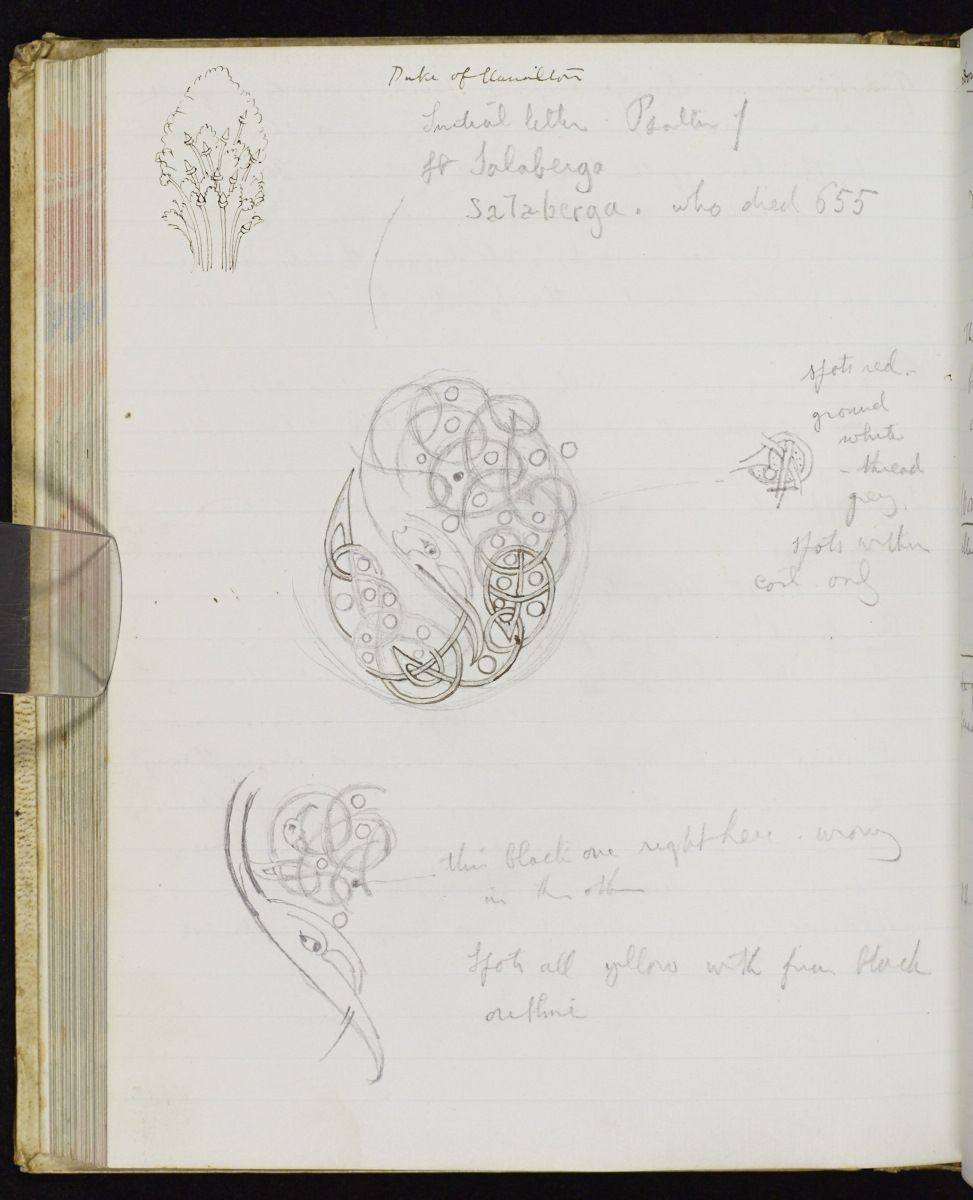 Duke of Hamilton
Initial letter. Psalter of
St Salaberga
Salaberga. who died 655
spots red.
ground
white
- thread
grey.
spots within
coil only
this black one right here. wrong
in the other
Spots all yellow with firm black
outline